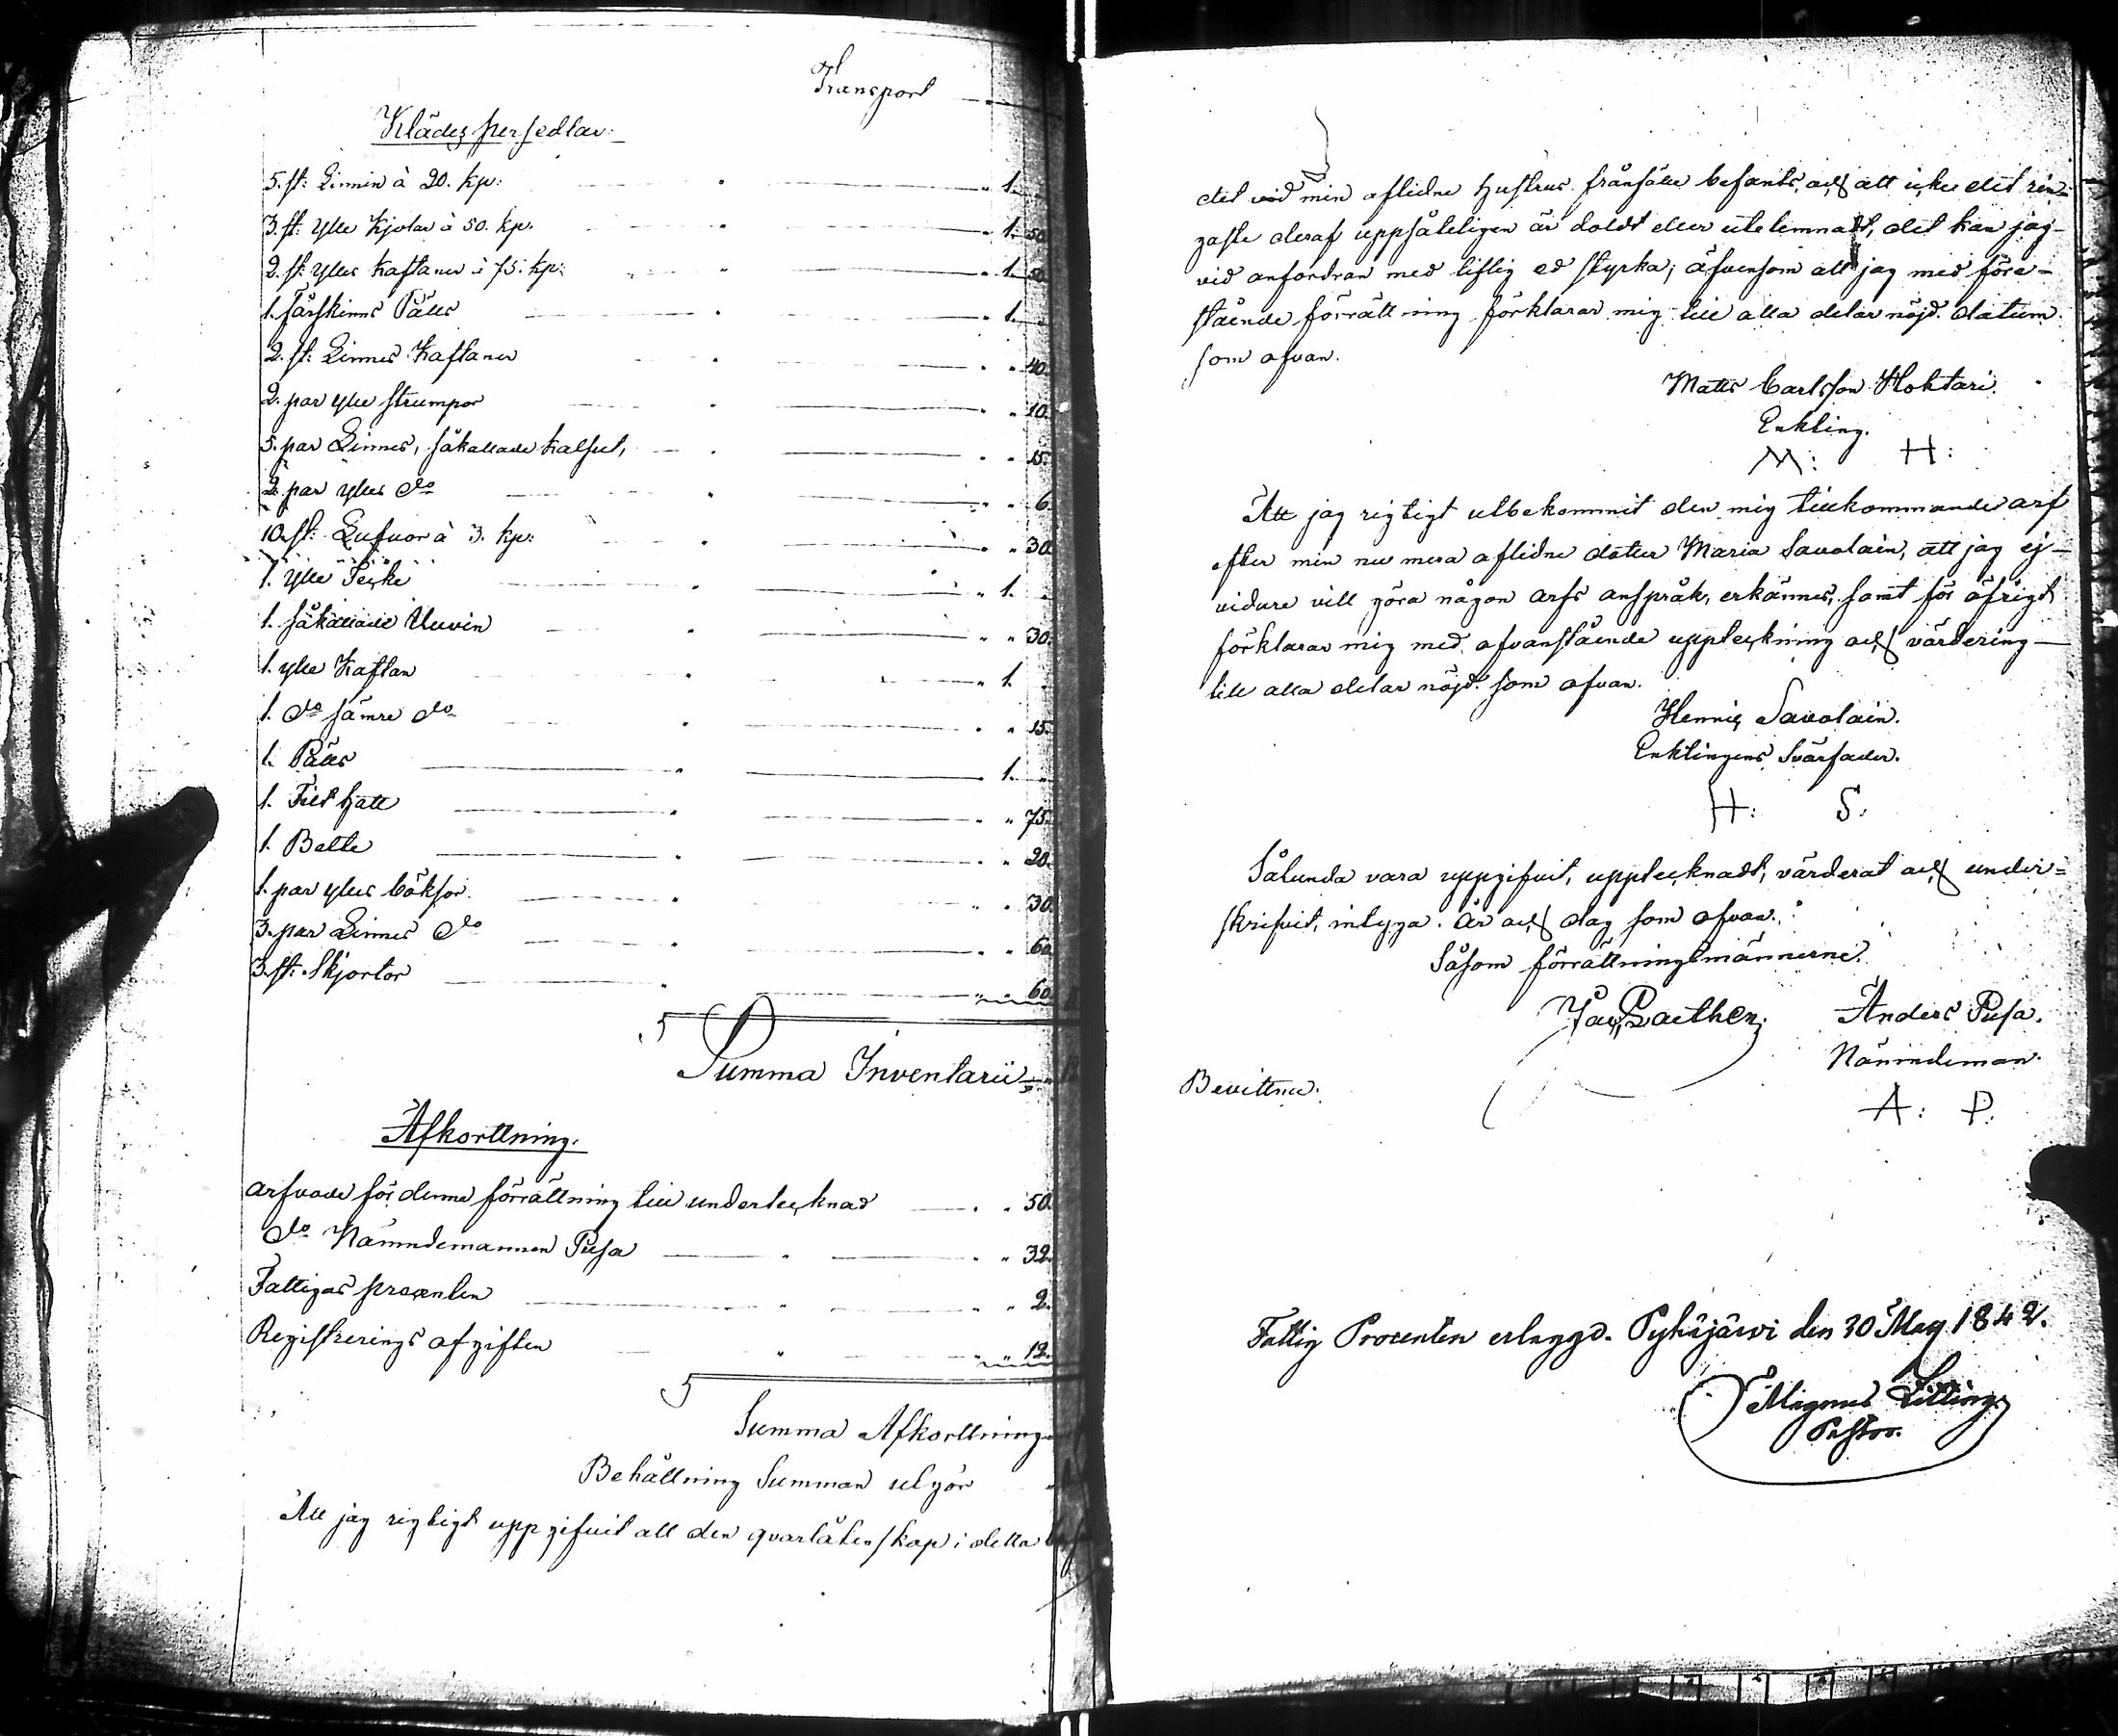 Transport
Klädespersedlar.
5. st: Linnin à 20. kp: " 1.
3. st: ylle Kjolar à 50. kp. " 1. 50
2. st: ylles Kaftaner à 75. kp: " 1. 50
1. fårskinns Pälls " 1.
2. st: Linnes Kaftaner " " 40.
2. par ylle strumpor " " 10.
5. par Linnes, såkallade kalsut, " " 15.
2. par ylles do " " 6.
10. st: Lufvor à 3. kp: " " 30
1. ylle " 1.
1. såkallade " " 30.
1. ylle Kaftan " 1.
1. do sämre do " " 15.
1. Pälls " 1.
1. Filt hatt " " 75.
1. Bälte " " 20.
1. par ylles böksor. " " 30
3. par Linnes do " " 60
3. st: Skjortor " " 60
Summa Inventarii
Afkorttning.
arfvode för denna förrättning till undertecknad " " 50.
do Nämndemannen Pusa " " 32.
Fattigas procenten " " 2.
Registrerings afgiften " " 12.
Summa Afkorttning
Behållning Summan utgör
Att jag rigtigt uppgifvit all den qvarlåtenskap i detta
det vid min aflidne hustrus frånfälle befants, och att icke det rin-
gaste deraf uppsåteligen är doldt eller utelemnadt, det kan jag
vid anfordran med liflig ed styrka; äfvensom att jag med före-
stående förrättning förklarar mig till alla delar nöjd. datum
som ofvan.
Matts Carlsson Hoktari.
Enkling.
M: H:
Att jag rigtigt utbekommit den mig tillkommande arf
efter min nu mera aflidne dotter Maria Savolain, att jag ej
vidare vill göra någon arfs anspråk, erkännes, samt för öfrigt
förklarar mig med ofvanstående uppteckning och värdering
till alla delar nöjd. som ofvan.
Hennic Savolain.
Enklingens Svärfader.
H: S:
Sålunda vara uppgifvit, upptecknadt, värderat och under-
skrifvit, intyga. År och dag som ofvan.
Såsom förrättningsmännerne.
Anders Pusa.
Nämndeman.
Bevittna:
A: P:
Fattig Procenten erlaggd. Pyhäjärvi den 30 May 1842.
Magnus
Pastor.